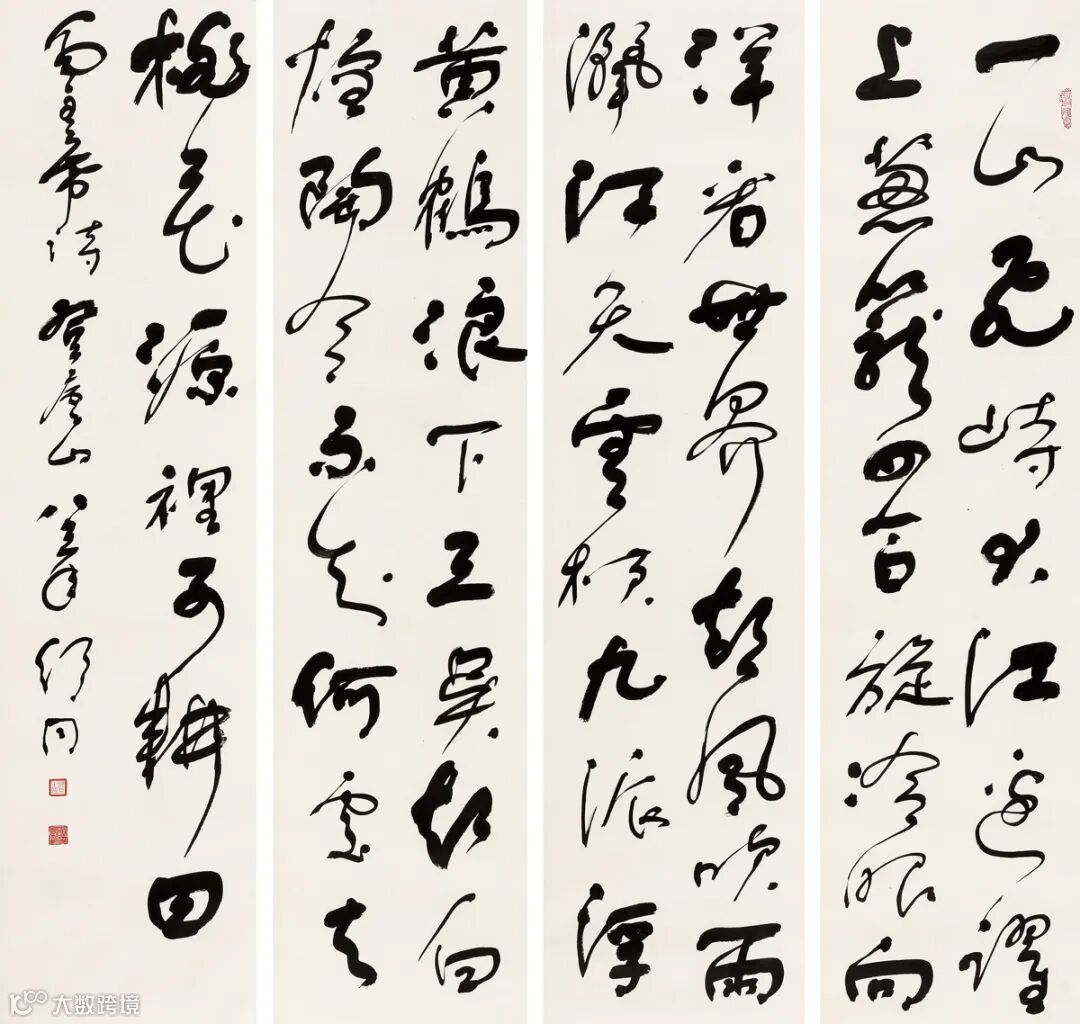 一山飛峙大江邊躍
上葱蘢四百旋冷眼向
洋看世界熱風吹雨
灑江天雲橫九派浮
黃鶴浪下三吳起白
煙陶令不知何處去
桃花源裡可耕田
毛主席詩登廬山 舒同
大数跨境